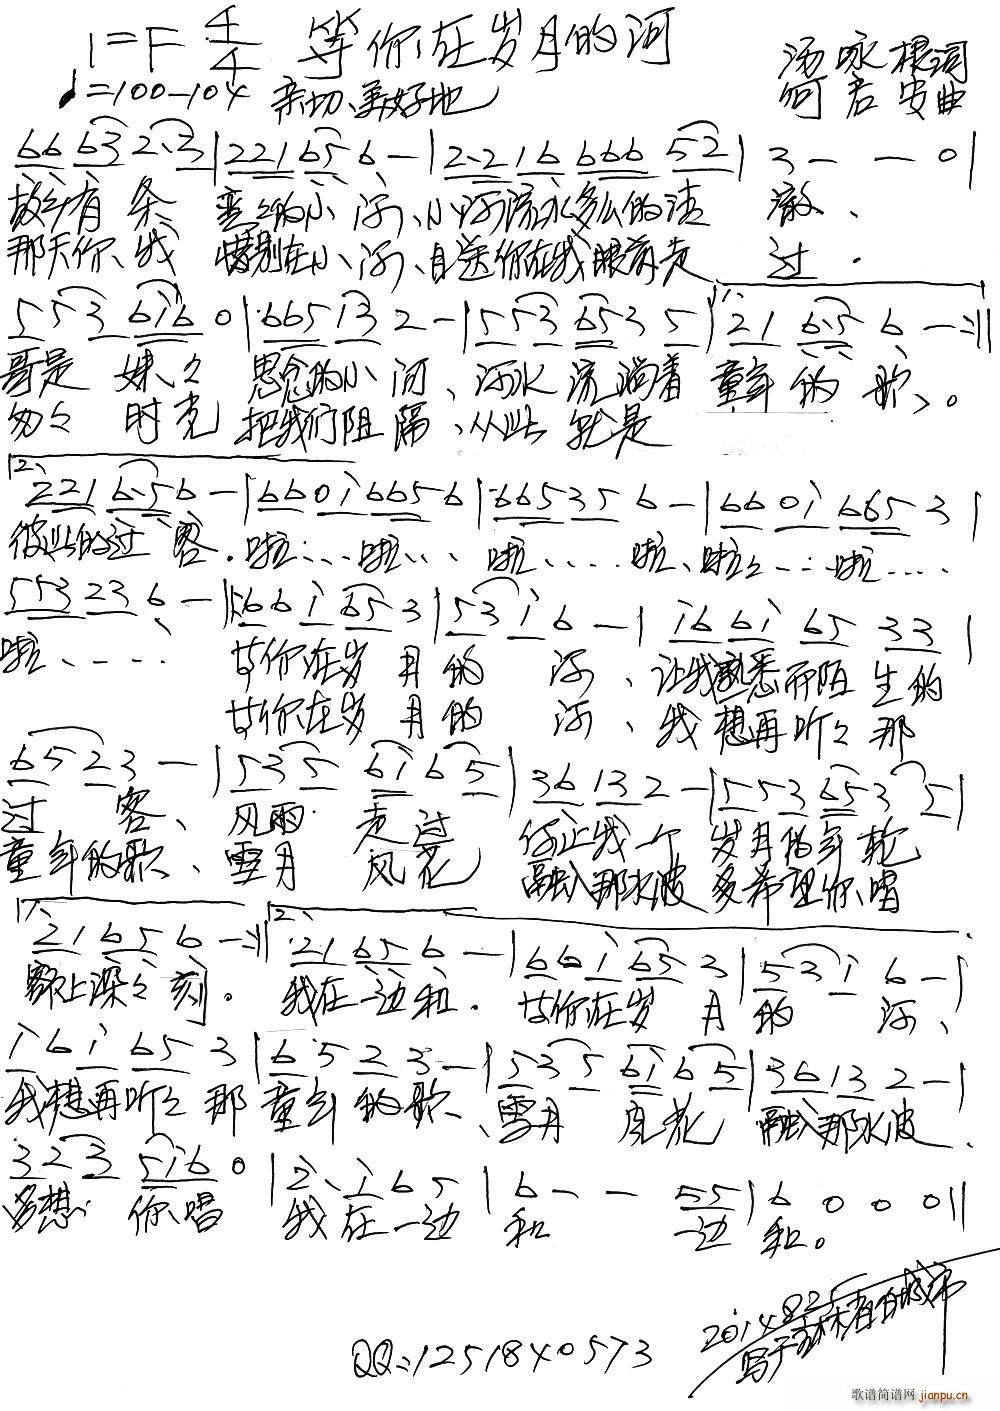 1=F 4/4 等你在岁月的河
♩=100-104 亲切、美好地
汤咏根词
何君安曲
66 63 2·3 | 221 65 6 - | 2·21 6 666 52 | 3 - - 0 |
故乡有条 弯々的小河、小河流水多么的清澈、
那天你、我 惜别在小河、目送你在我眼前走过.
553 6i6 0 | 665 13 2 - | 553 65 3 5 | 1、 21 6·5 6 - :||
哥是妹々 思念的小河、河水流淌着童年的歌、。
匆々时克 把我们阻隔、从此就是
2、 221 6·5 6 - | 66 0i 665 6 | 665 35 6 - | 66 0i 665 3 |
彼此的过客. 啦……啦…… 啦…… 啦、啦々……啦……
553 23 6 - |: 66 i 65 3 | 53 i 6 - | i6 6i 65 33 |
啦、…… 等你在岁月的河、让我熟悉而陌生的
等你在岁月的河、我想再听々那
65 23 - | 53 5 6i 65 | 36 13 2 - | 553 65 3 5 |
过客、风雨走过 你让我一个 岁月的年轮
童年的歌、雪月风花 融入那水波 多希望你、唱
1、 21 65 6 - :|| 2、 21 65 6 - | 66 i 65 3 | 53 i 6 - |
额上深々刻。 我在一边和. 等你在岁月的河、
i 6 i 65 3 | 6 5 2 3 - | 53 5 6i 65 | 36 13 2 - |
我想再听々那童年的歌、雪月风花 融入那水波.
323 5i6 0 | 2 i 6 5 | 6 - - 55 | 6 0 0 0 ||
多想 你、唱 我在一边 和 边 和。
2014.8.25
QQ:1251840573
歌谱简谱网 jianpu.cn